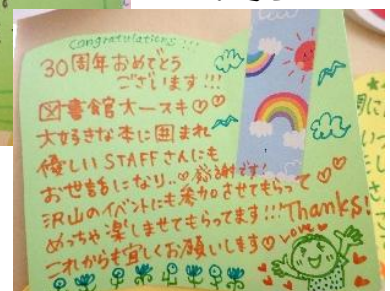 Congratulations!!!
30周年おめでとう
ございます!!!
図書館大ースキ♡♡
大好きな本に囲まれ
優しいSTAFFさんにも
お世話になり..♡感謝です!
沢山のイベントにも参加させてもらって♡♡
めっちゃ楽しませてもらってます!!!Thanks!
これからも宜しくお願いします♡ Love